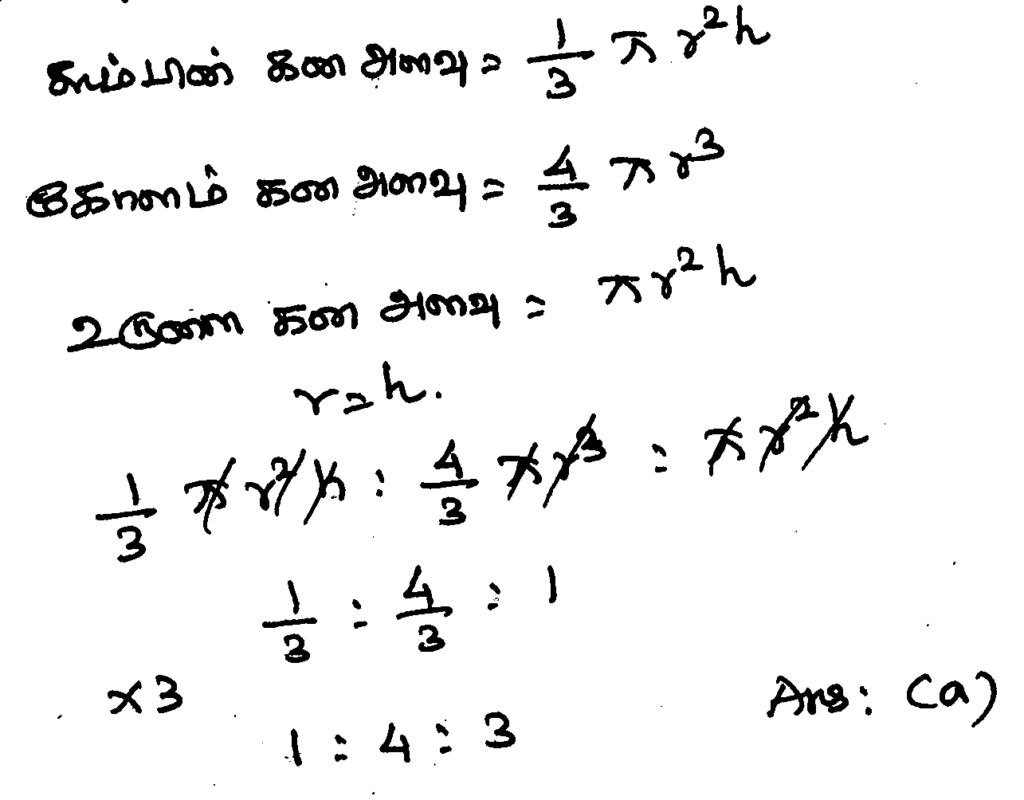 கூம்பின் கன அளவு = 1/3 π r²h
கோளம் கன அளவு = 4/3 π r³
உருளை கன அளவு = π r² h
r = h.
1/3 π r² h : 4/3 π r³ : π r² h
1/3 : 4/3 : 1
×3
1 : 4 : 3 Ans: (a)